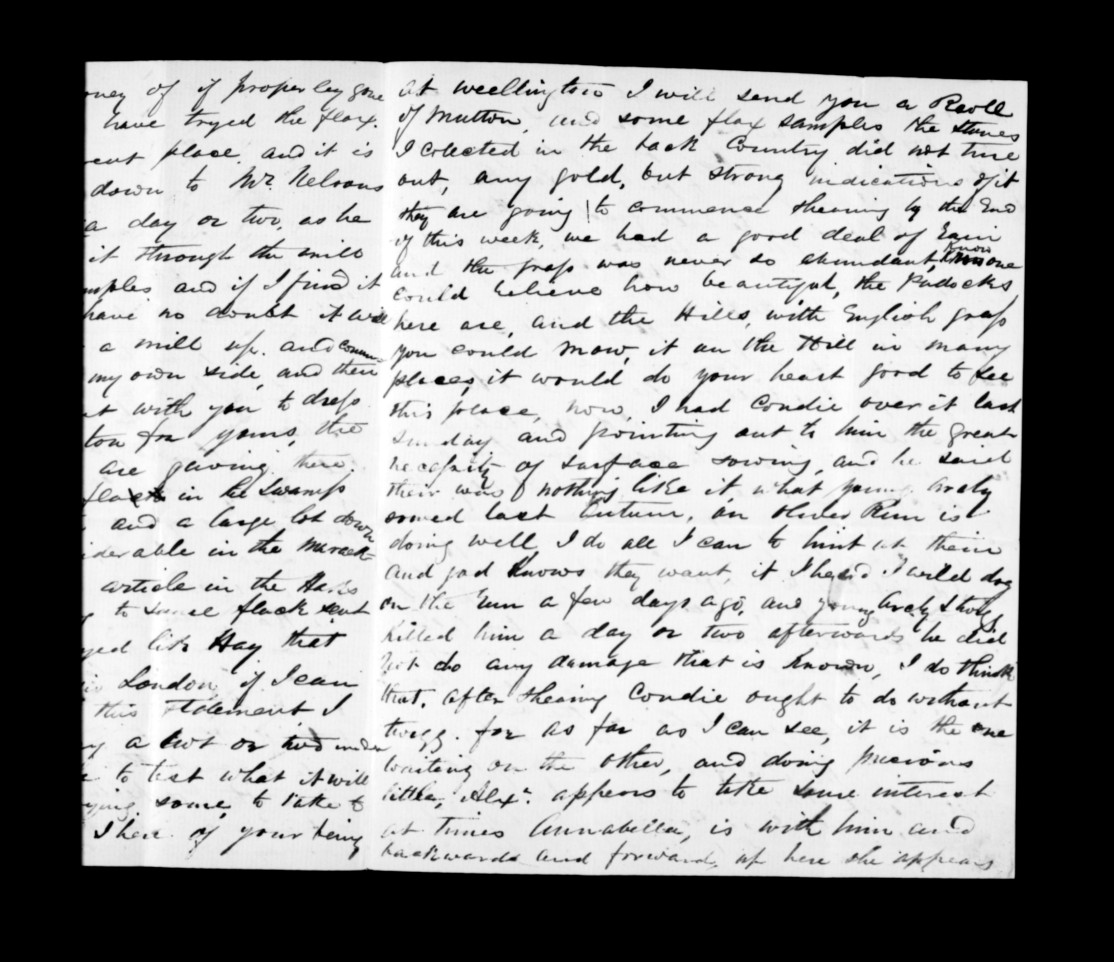 oney of if properley gone
have tryed the flax.
rent place, and it is
down to Mr. Nelsons
a day or two, as he
it through the mill
mples and if I find it
have no doubt it will
a mill up. and
my own side, and then
t with you to dress
ton for yours, the
are giving there.
in the Swamp
and a large lot down
iderable in the
article in the
to some flack sent
yed like Hay that
London, if I can
this statement I
a cwt or two under
to test what it will
ying some, to take to
I hear of your being
at weellington I will send you a
of Mutton, and some flax samples the stones
I colected in the back Country did not turn
out, any gold, but strong indications of it
they are going to commence shearing by the End
of this week, we had a good deal of Rain
and the grass was never so abundant, know one
could believe how beautiful, the Padocks
here are, and the Hills, with English grass
you could mow, it on the Hill in many
places, it would do your heart good to see
this place, now, I had Condie over it last
sunday and pointing out to him the great
necessity of surface sowing, and he said
their was nothing like it, what young
sowed last Autumn, on Oliver Run is
doing well, I do all I can to hint at them
and god Knows they want, it I heard a wild dog
on the Run a few days ago, and young
Killed him a day or two afterwards he did
not do any damage that is Known, I do think
that, after shearing Condie ought to do without
twigg. for as far as I can see, it is the one
waiting on the other, and doing precious
little, Alexr. appears to take some interest
at times Annabella, is with him and
backwards and forward, up here she appears